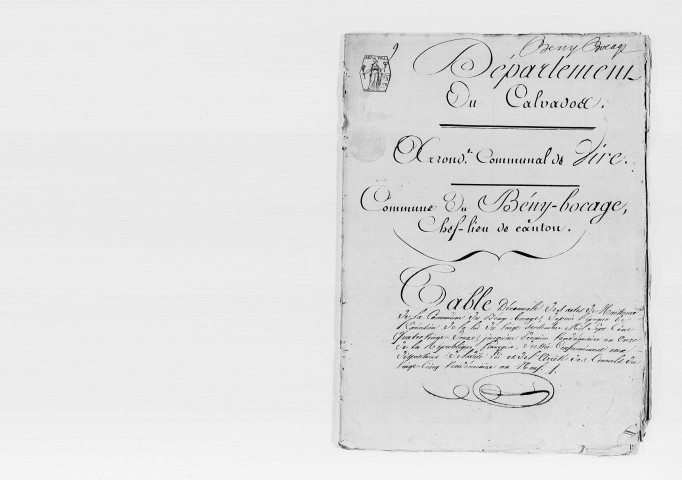 9
Beny Bocage
Département
Du Calvados.
Arrond.t Communal de Vire.
Commune Du Bény-bocage,
Chef-lieu de canton.
Table Décennale des actes de
de la Commune du Bény-Bocage, depuis l'époque de
l'Exécution de la loi du Vingt Septembre Mil Sept Cent
Quatre Vingt Douze, jusqu'au premier Vendémiaire an Onze
de la République française, Dressée Conformément aux
Dispositions de ladite loi et de l'Arrêté des Consuls du
Vingt-Cinq Vendémiaire an Neuf.